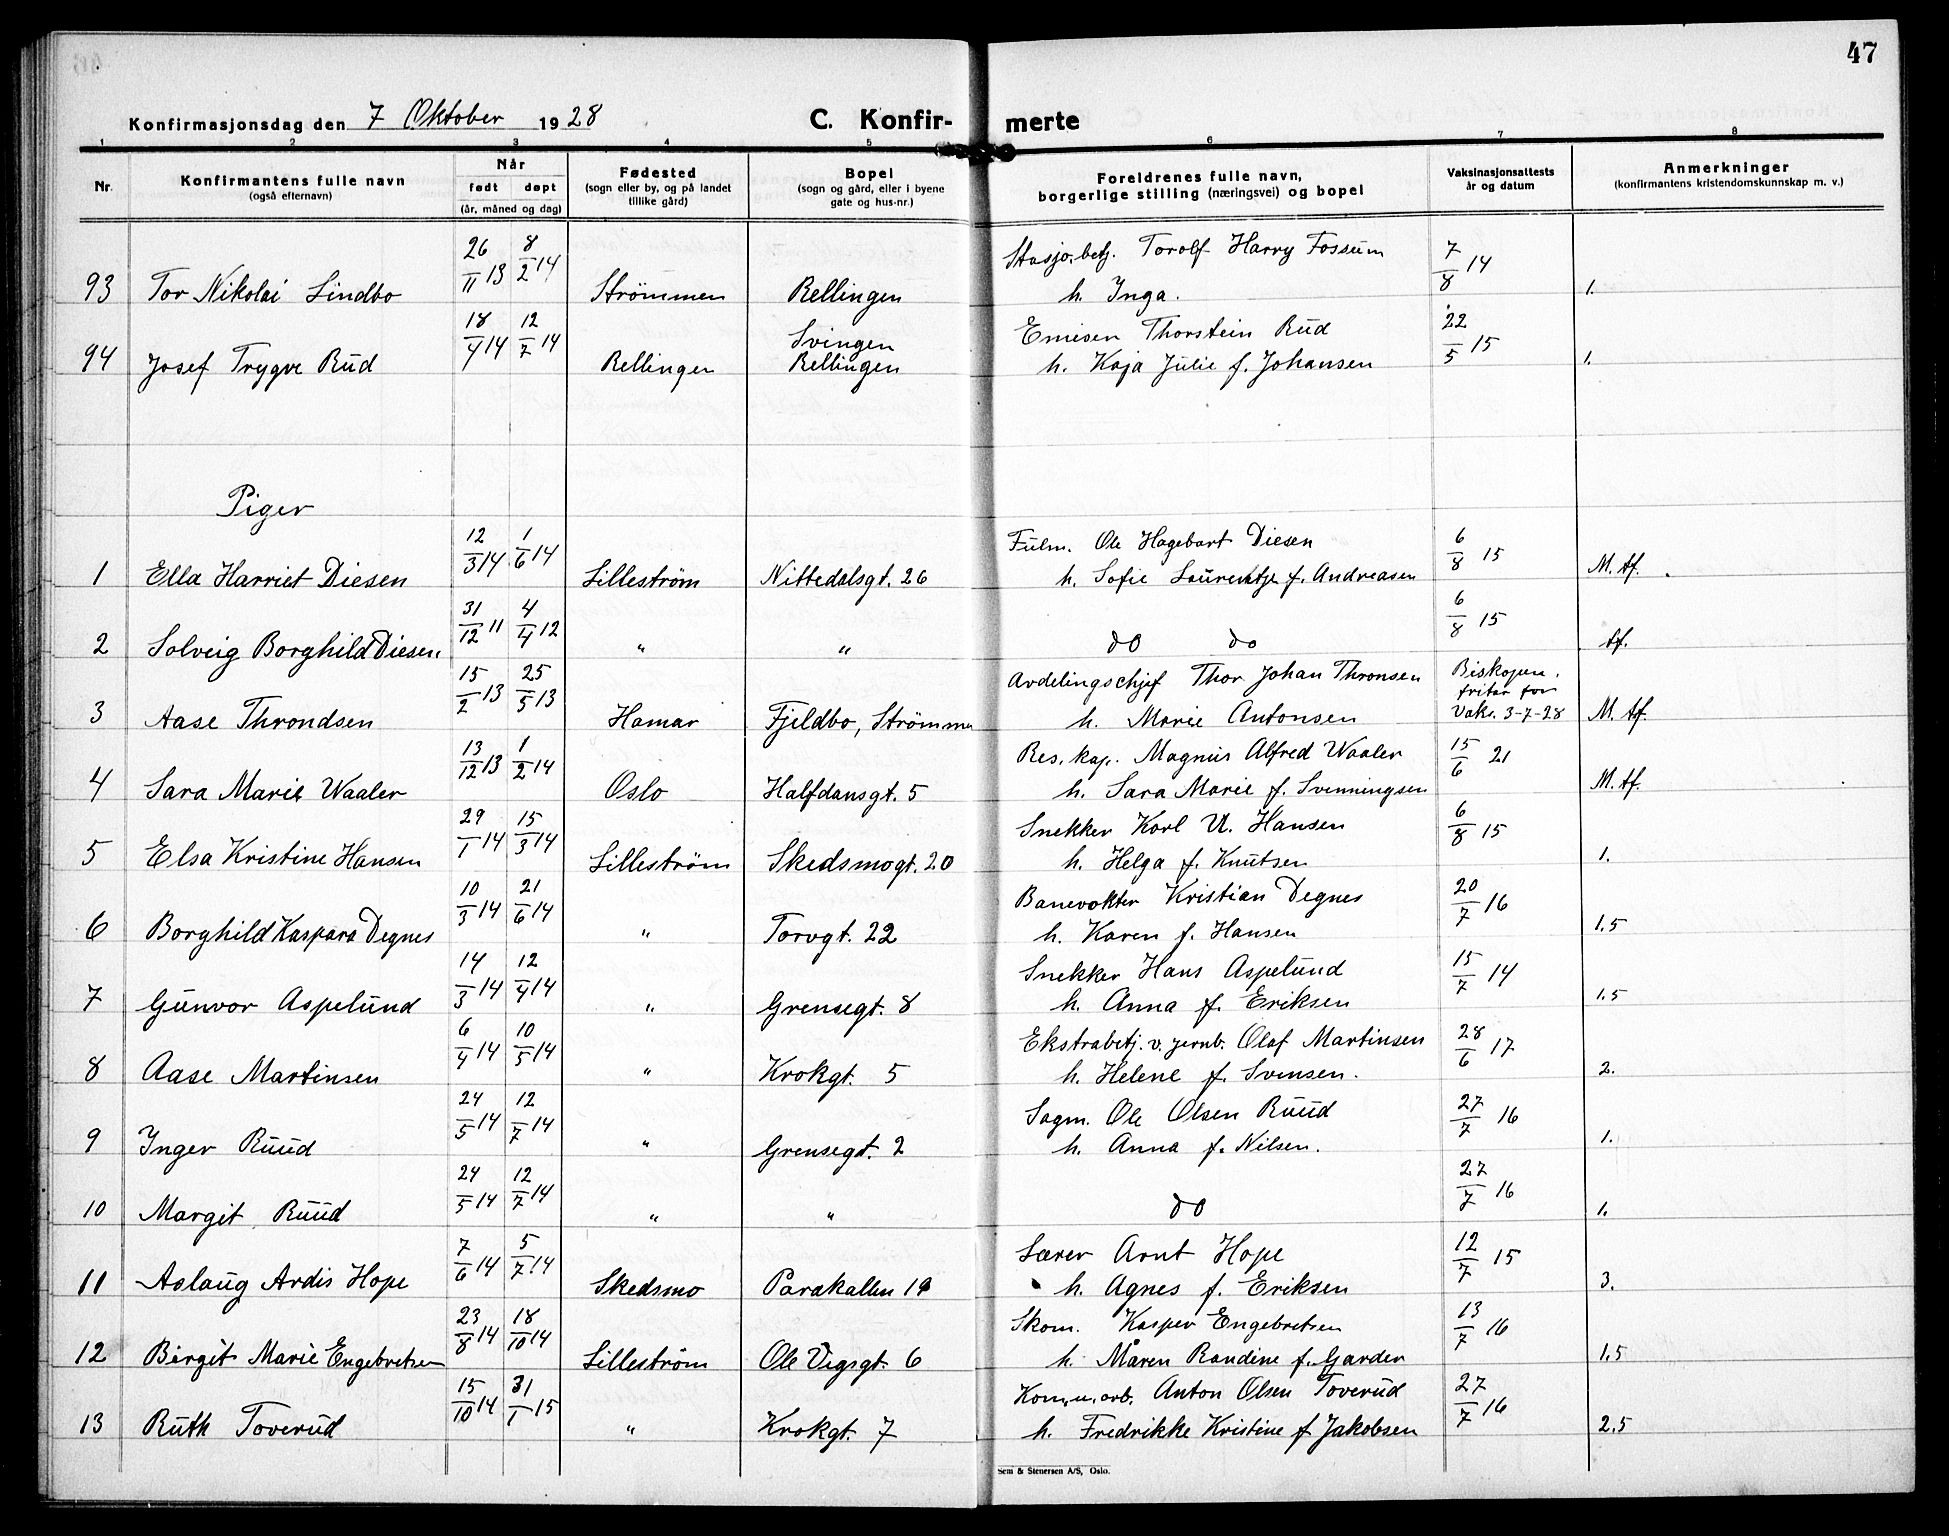 47
Konfirmasjonsdag den 7 Oktober 1928 C. Konfir- merte
1 2 3 4 5 6 7 8
Nr. Konfirmantens fulle navn (også efternavn) Når født døpt (år, måned og dag) Fødested (sogn eller by, og på landet tillike gård) Bopel (sogn og gård, eller i byene gate og hus-nr.) Foreldrenes fulle navn, borgerlige stilling (næringsvei) og bopel Vaksinasjonsattests år og datum Anmerkninger (konfirmantens kristendomskunnskap m. v.)
93 Tor Nikolai Lindbo 26/11 13 8/2 14 Strömmen Rellingen Stasjo.betj. Torolf Harry Fossum h. Inga. 7/8 14 1.
94 Josef Trygve Rud 18/4 14 12/7 14 Rellingen Svingen Rellingen Emisen Thorstein Rud h. Kaja Julie f. Johansen 22/5 15 1.
Piger
1 Ella Harriet Diesen 12/3 14 1/6 14 Lilleström Nittedalsgt. 26 Fulm. Ole Hagebart Diesen h. Sofie Laurentze f. Andreasen 6/8 15 M. tf.
2 Solveig Borghild Diesen. 31/12 11 4/4 12 " " do do 6/8 15 tf.
3 Aase Throndsen 15/2 13 25/5 13 Hamar Fjeldbo, Strömmen Avdelingschjef Thor Johan Thronsen h. Marie Antonsen Biskopen. fritar for Vaks. 3-7-28 M. tf.
4 Sara Marie Waaler 13/12 13 1/2 14 Oslo Halfdansgt. 5 Res. kap. Magnus Alfred Waaler h. Sara Marie f. Svenningsen 15/6 21 M. tf.
5 Elsa Kristine Hansen 29/1 14 15/3 14 Lilleström Skedsmogt. 20 Snekker Karl A. Hansen h. Helga f. Knutsen 6/8 15 1.
6 Borghild Kaspara Degnes 10/3 14 21/6 14 " Torvgt. 22 Banevokter Kristian Degnes h. Karen f. Hansen 20/7 16 1.5
7 Gunvor Aspelund 14/3 14 12/4 14 " Grensegt. 8 Snekker Hans Aspelund h. Anna f. Eriksen 15/7 14 1.5
8 Aase Martinsen 6/4 14 10/5 14 " Krokgt. 5 Ekstrabetj. v. jernb. Olaf Martinsen h. Helene f. Svensen. 28/6 17 2.
9 Inger Ruud 24/5 14 12/7 14 " Grensegt. 2 Sagm. Ole Olsen Ruud h. Anna f. Nilsen. 27/7 16 1.
10 Margit Ruud 24/5 14 12/7 14 " " do 27/7 16 1.
11 Aslaug Ardis Hope 7/6 14 5/7 14 Skedsmo Parakallen 19 Lærer Arnt Hope h. Agnes f. Eriksen 12/7 15 3.
12 Birgit Marie Engebretsen 23/8 14 18/10 14 Lilleström Ole Vigsgt. 6 Skom. Kasper Engebretsen h. Maren Randine f. Garder 13/7 16 1.5
13 Ruth Toverud 15/10 14 31/1 15 " Krokgt. 7 Komm. arb. Anton Olsen Toverud h. Fredrikke Kristine f Jakobsen 27/7 16 2.5
Sem & Stenersen A/S, Oslo.